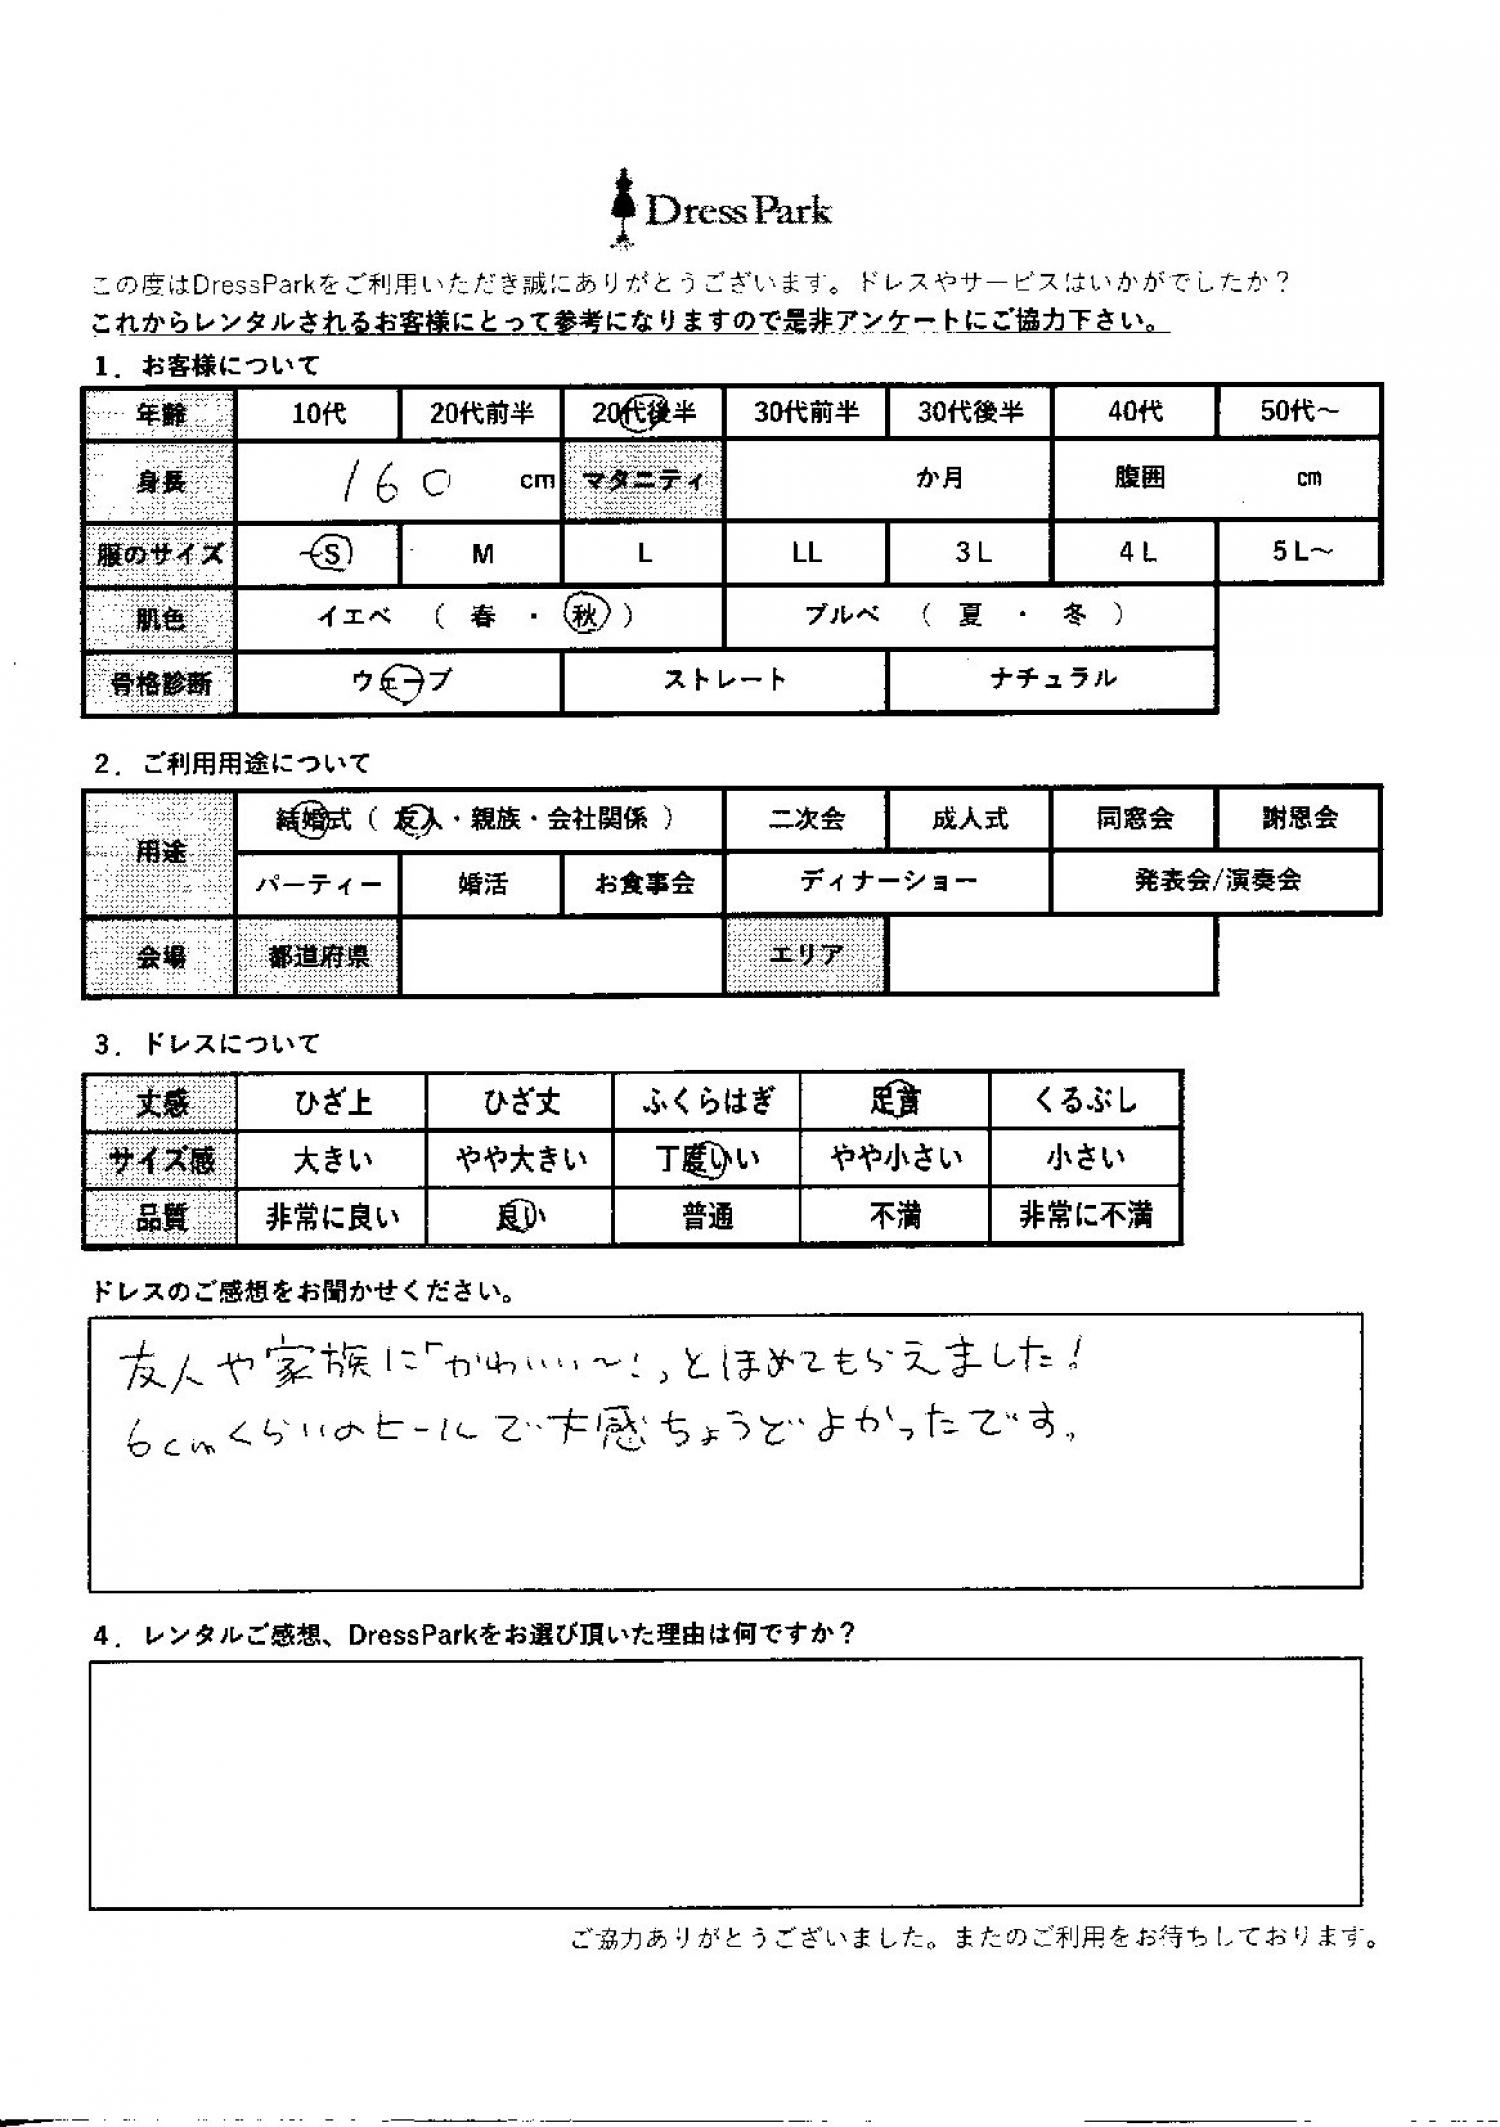 DressPark
この度はDressParkをご利用いただき誠にありがとうございます。ドレスやサービスはいかがでしたか？
これからレンタルされるお客様にとって参考になりますので是非アンケートにご協力下さい。
1．お客様について
年齢 10代 20代前半 20代後半 30代前半 30代後半 40代 50代～
身長 160 cm マタニティ か月 腹囲 cm
服のサイズ ~S M L LL 3L 4L 5L～
肌色 イエベ （ 春 ・ 秋 ） ブルベ （ 夏 ・ 冬 ）
骨格診断 ウェーブ ストレート ナチュラル
2．ご利用用途について
用途 結婚式（ 友人・親族・会社関係 ） 二次会 成人式 同窓会 謝恩会
パーティー 婚活 お食事会 ディナーショー 発表会/演奏会
会場 都道府県 エリア
3．ドレスについて
丈感 ひざ上 ひざ丈 ふくらはぎ 足首 くるぶし
サイズ感 大きい やや大きい 丁度いい やや小さい 小さい
品質 非常に良い 良い 普通 不満 非常に不満
ドレスのご感想をお聞かせください。
友人や家族に「かわいい～!」とほめてもらえました!
6cmくらいのヒールで丈感ちょうどよかったです。
4．レンタルご感想、DressParkをお選び頂いた理由は何ですか？
ご協力ありがとうございました。またのご利用をお待ちしております。